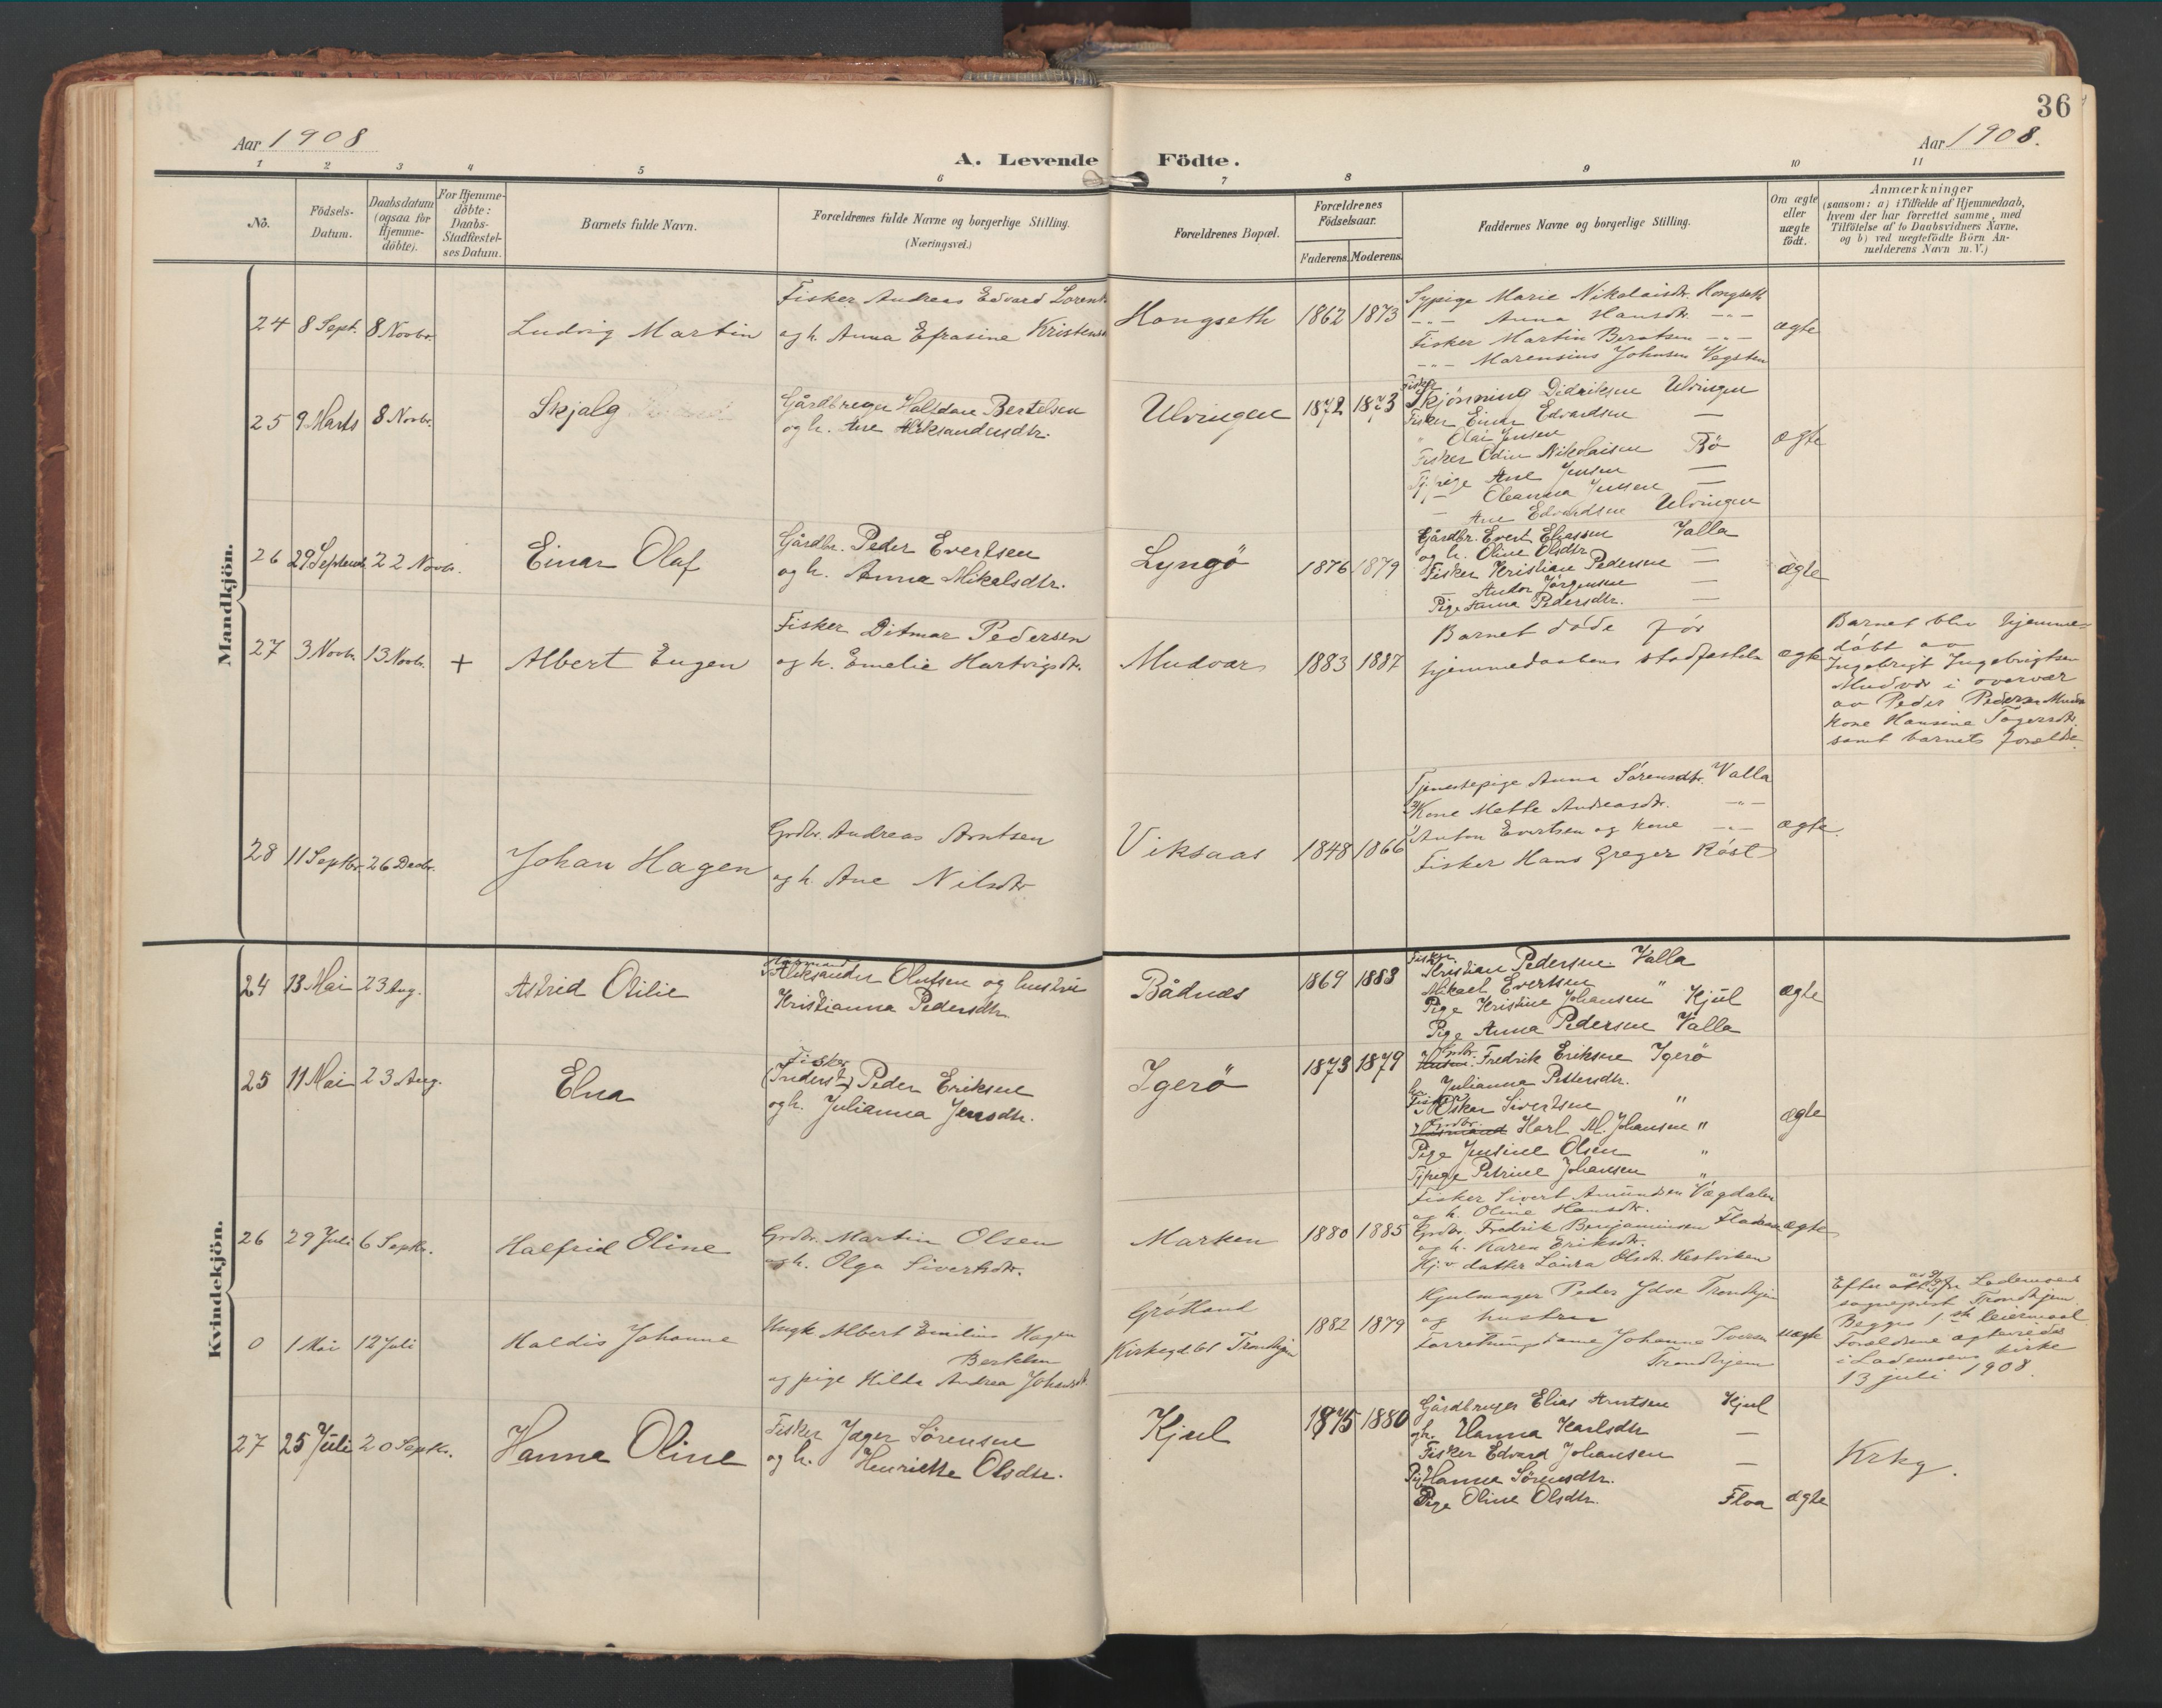 36
Aar 1908
Aar 1908.
A. Levende Födte.
1 2 3 4 5 6 7 8 9 10 11
No.
Födsels-Datum.
Daabsdatum (ogsaa for Hjemme-döbte).
For Hjemme-döbte: Daabs-Stadfæstel-ses Datum.
Barnets fulde Navn.
Forældrenes fulde Navne og borgerlige Stilling. (Næringsvei.)
Forældrenes Bopæl.
Forældrenes Födselsaar.
Faderens. Moderens.
Faddernes Navne og borgerlige Stilling.
Om ægte eller uægte födt.
Anmærkninger
(saasom: a) i Tilfælde af Hjemmedaab,
hvem der har forrettet samme, med
Tilföielse af to Daabsvidners Navne,
og b) ved uægtefödte Börn An-
melderens Navn m. V.)
Mandkjön.
24 8 Sept. 8 Novbr. Ludvig Martin
Fisker Andreas Edvard Lorents
og h. Anna Efrasine Kristens
Hongseth 1862 1873
Sypige Marie Nikolaisdtr. Hongseth
-"- Anna Hansdtr. -"-
Fisker Martin Berntsen -"-
-"- Marensius Johnsen Vegsten
ægte
25 9 Marts 8 Novbr. Skjalg
Gårdbruger Halfdan Bertelsen
og h. Ane Aleksandersdtr.
Ulvingen 1872 1873
Fisker
Skjönning Didriksen Ulvingen
Fisker Einar Edvardsen —
" Olai Jensen
Fisker Odin Nikolaisen Bö
Tj.pige Ane Jensen —
— Oleanna Jensen —
— Ane Edvardsen Ulvingen
ægte
26 29 Septemb. 22 Novbr. Einar Olaf
Gårdbr. Peder Evertsen
og h. Anna Mikalsdtr.
Lyngö 1876 1879
Gårdbr. Evert Eliassen Valla
og h. Oline Olsdtr. —
Fisker Kristian Pedersen —
Andor Jörgensen —
Pige Anna Pedersdtr. —
ægte
27 3 Novbr. 13 Novbr. + Albert Eugen
Fisker Ditmar Pedersen
og h. Emelie Hartvigsdtr.
Mudvær 1883 1887
Barnet döde för
hjemmedaabens stadfæstelse
ægte
Barnet blev hjemme-
döbt av
Ingebrigt Ingebrigtsen
Mudvær i overvær
av Peder Pedersen Mudv
kone Hansine Tagersdtr.
samt barnets forældre.
28 11 Septbr. 26 Decbr. Johan Hagen
Grdbr. Andreas Arntsen
og h. Ane Nilsdtr.
Viksaas 1848 1866
Tjenestepige Anna Sörensdtr. Valla
Kone Mette Andreasdtr. -"-
Anton Evertsen og kone -"-
Fisker Hans Greger Röst
ægte.
Kvindekjön.
24 13 Mai 23 Aug. Astrid Otilie
Aleksander Olufsen og hustru
Kristianna Pedersdtr.
Bådnæs 1869 1883
Fisker
Kristian Pedersen. Valla
Mikael Evertsen "
Pige Kristine Johansen Kjul
Pige Anna Pedersen Valla
ægte
25 11 Mai 23 Aug. Elna
Fisker
(Inderst) Peder Eriksen
og h. Julianna Jensdtr.
Igerö 1873 1879
Grdbr.
Fredrik Eriksen Igerö
h. Julianna Pettersdtr.
Fisker
Oskar Sivertsen "
Grdbr.
Husmand Karl M. Johansen "
Pige Jensine Olsen "
Tjpige Petrine Johansen "
ægte
26 29 Juli 6 Septbr. Halfrid Oline
Grdbr. Martin Olsen
og h. Olga Sivertsdtr.
Marken 1880 1885
Fisker Sivert Amundsen Vægdalen
og h. Oline Hansdtr.
Grdbr. Fredrik Benjaminsen Fladnes
og h. Karen Eriksdtr.
Hj.v. datter Laura Olsdtr. Hestviken
ægte
0 1 Mai 12 Juli Haldis Johanne
Ungk. Albert Emilius Hagen
Bertelsen
og pige Hilda Andrea Johansdtr.
Grötland
Kirkegd 61 Trondhjem
1882 1879
Hjulmager Peder Ydse Trondhjem
og hustru
Forretningsdame Johanna Iversen
Trondhjem
uægte
Efter att. av fra Lademoens
sogneprest Trondhjem.
Begges 1ste leiermaal
Forældrene ægteviedes
i Lademoens kirke
13 juli 1908.
27 25 Juli 20 Septbr. Hanna Oline
Fisker Jæger Sörensen
og h. Henriette Olsdtr.
Kjul 1875 1880
Gårdbruger Elias Arntsen Kjul
og h. Hanna Karlsdtr —
Fisker Edvard Johansen
Pige Hanna Sörensdtr. —
Pige Oline Olsdtr. Floa
ægte
Krkg.